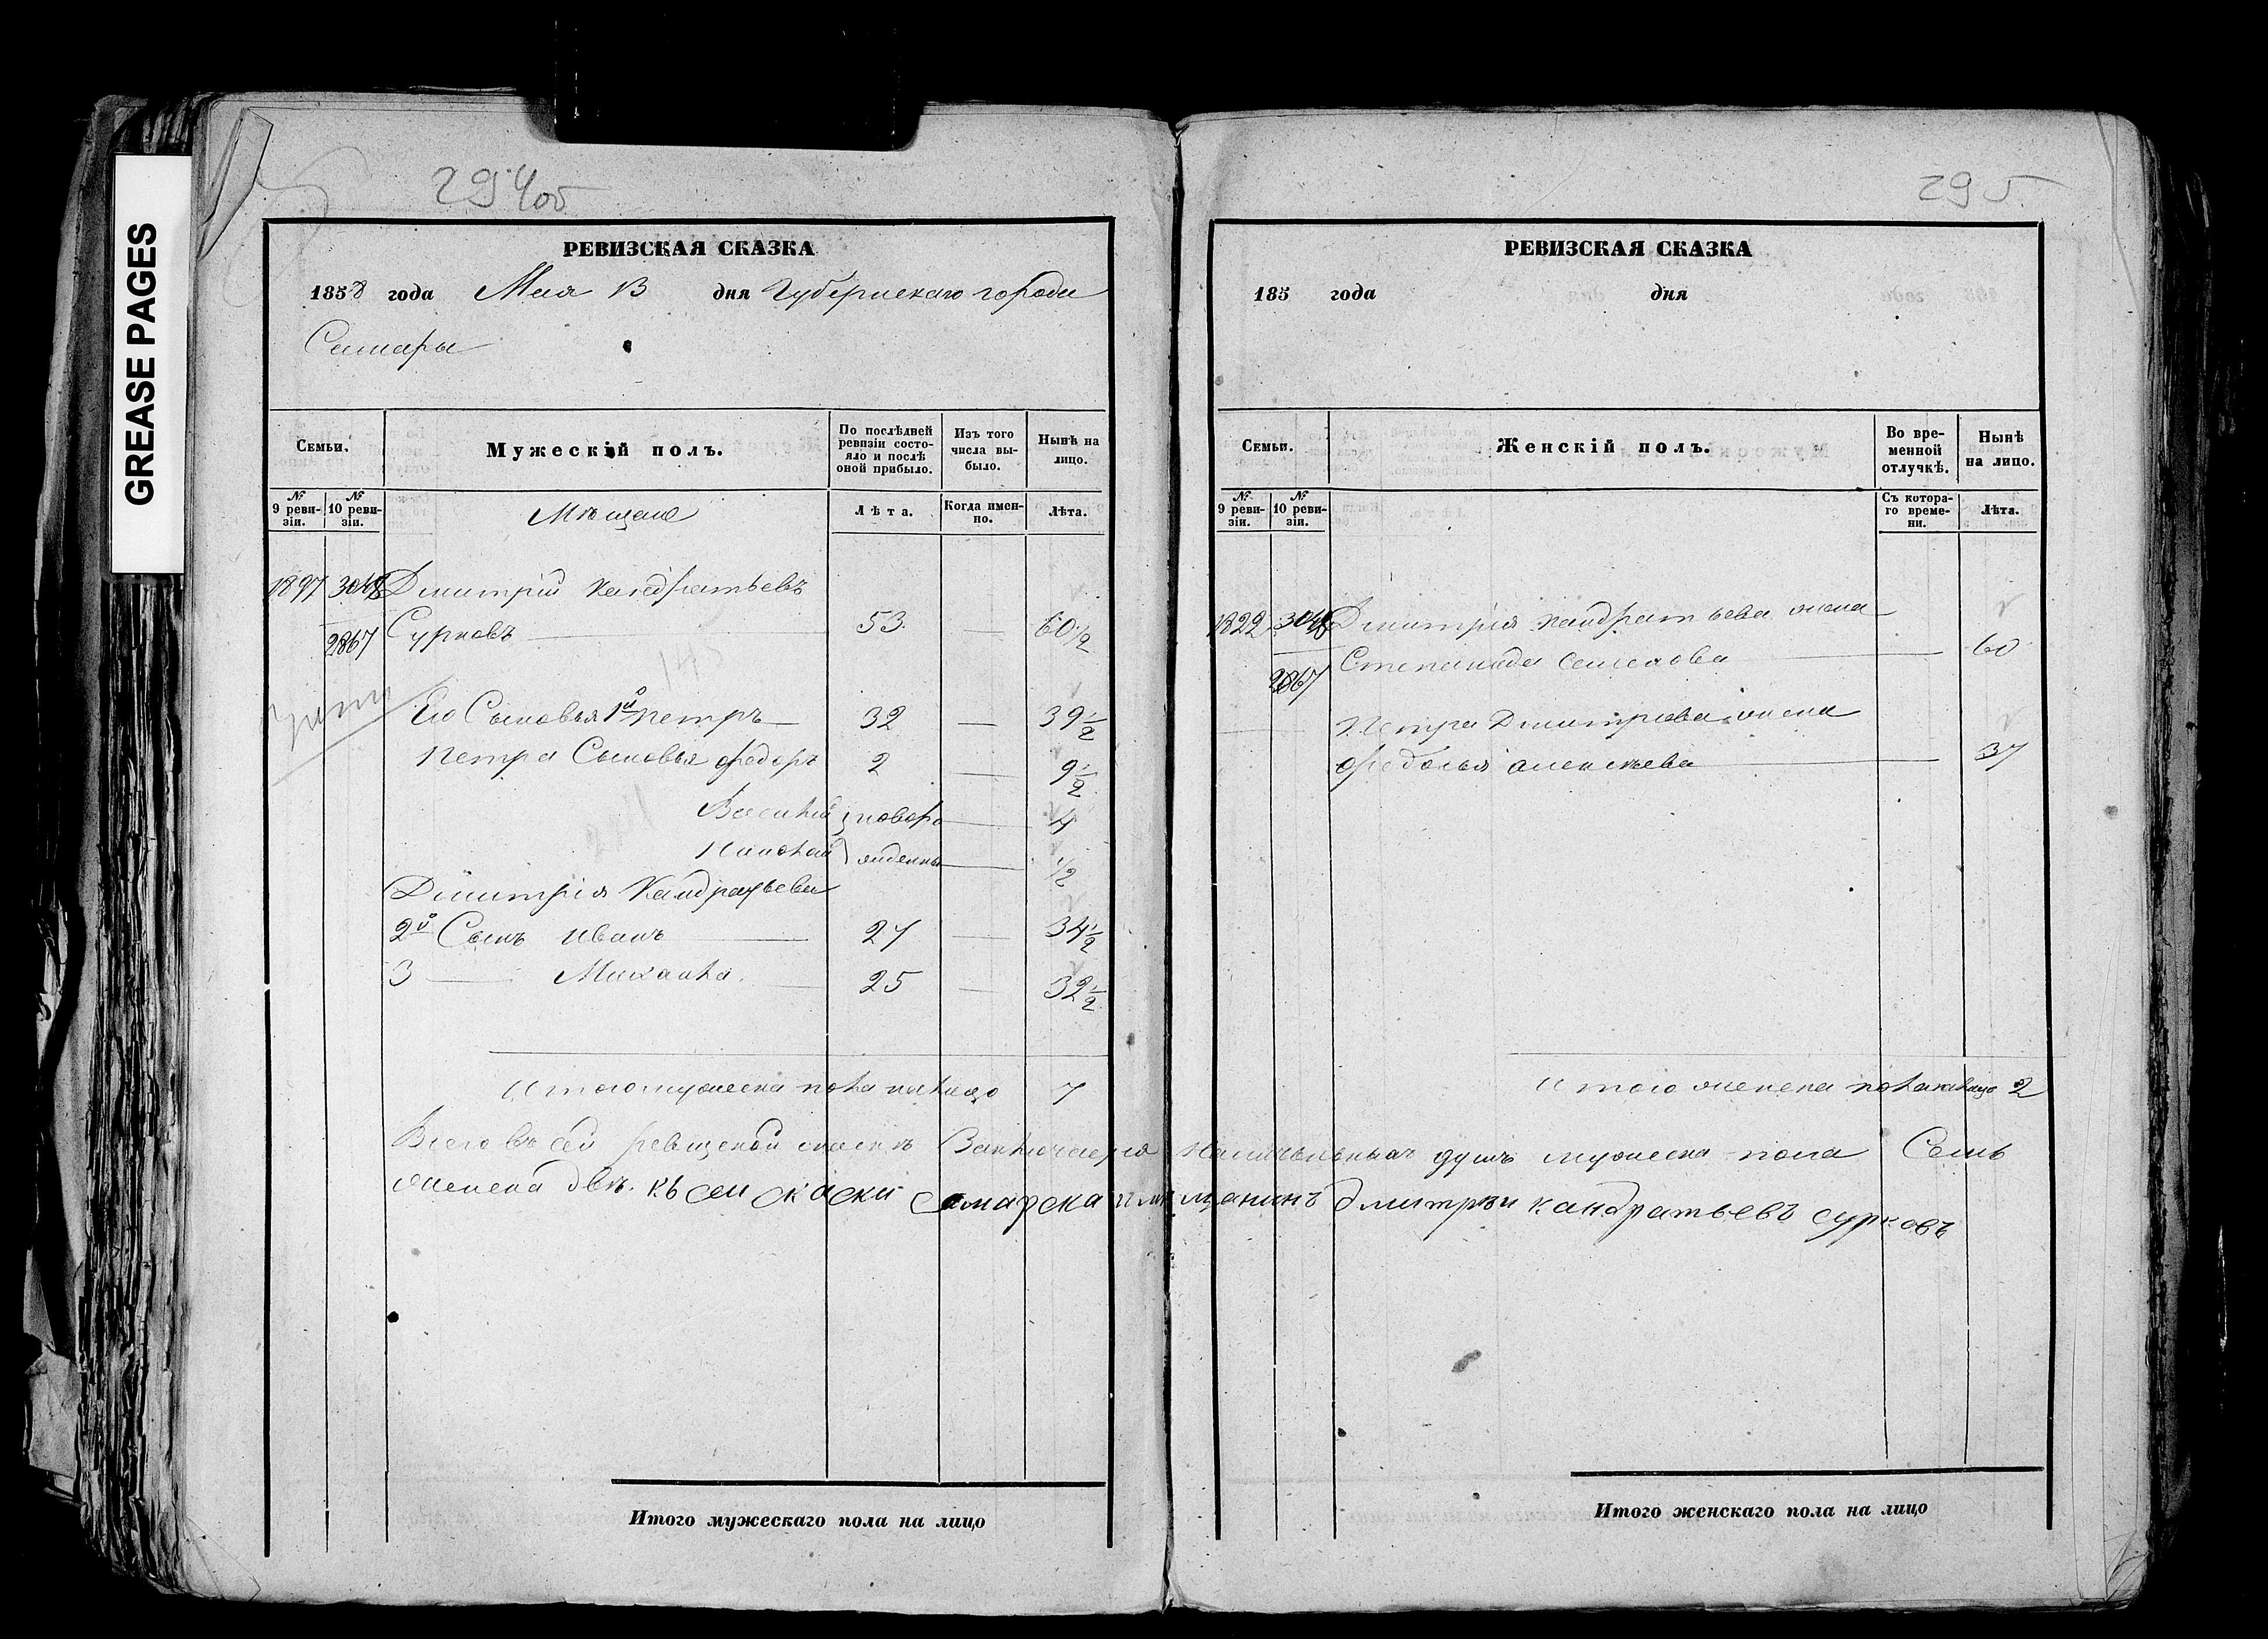 GREASE PAGES
294об
РЕВИЗСКАЯ СКАЗКА
1858 года Мая 13 дня Губернскаго города
Самары
Семьи.
Мужескій полъ.
По послѣдней ревизіи состояло и послѣ оной прибыло.
Изъ того числа выбыло.
Нынѣ на лицо.
№ 9 ревизіи.
№ 10 ревизіи.
Мѣщане
Лѣта.
Когда именно.
Лѣта.
1897 3048 Дмитрій Кандратьевъ
2867 Сурковъ 53 — 60 1/2
Его Сыновья 1й Петръ 32 — 39 1/2
Петра Сыновья Федоръ 2 — 9 1/2
Василий новоро — 4
Николай жденны — 1/2
Дмитрія Кандратьева
2й Сынъ Иванъ 27 — 34 1/2
3 — Михаила 25 — 32 1/2
Итого мужеска пола налицо 7
295
РЕВИЗСКАЯ СКАЗКА
185 года дня
Семьи.
Женскій полъ.
Во временной отлучкѣ.
Нынѣ на лицо.
№ 9 ревизіи.
№ 10 ревизіи.
Съ котораго времени.
Лѣта.
1822 3048 Дмитрія Кандратьева жена
2867 Степанида Семенова — 60
Петра Дмитриева жена
Федосья Алексѣева — 37
Итого женска пола налицо 2
Всего въ сей ревизской скаскѣ Заключается наличныхъ душъ мужеска пола Семь
женска двѣ. къ сеи скаски самарскаи мѣщанинъ дмитрѣи кандратьевъ сурковъ
Итого мужескаго пола на лицо
Итого женскаго пола на лицо